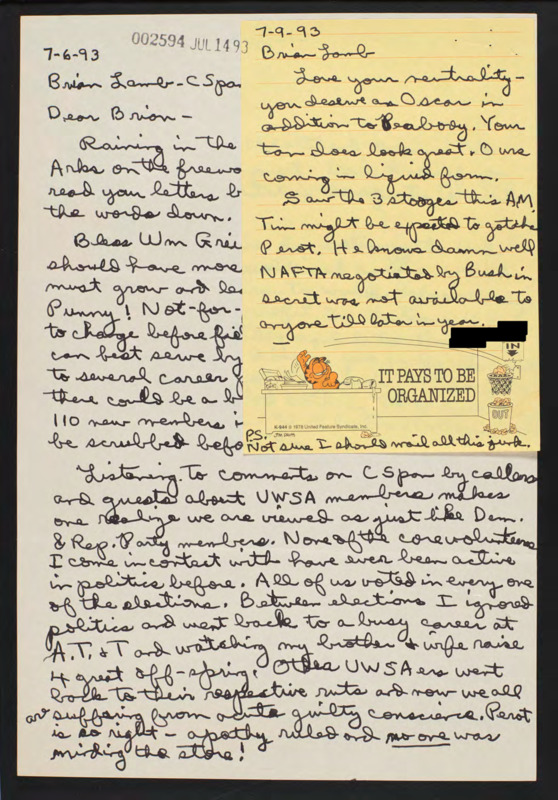 7-6-93
002594 JUL 14 93
Brian Lamb - C Span
Dear Brian -
Raining in the
Arks on the freewa
read your letters b
the words down.
Bless Wm Grei
should have more
must grow and lea
Punny! Not-for-
to change before fie
can best serve by
to several career
there could be a b
110 new members i
be scrubbed befo
Listening to comments on C Span by callers
and guests about UWSA members makes
one realize we are viewed as just like Dem.
& Rep. Party members. None of the core volunteers
I come in contact with have ever been active
in politics before. All of us voted in every one
of the elections. Between elections I ignored
politics and went back to a busy career at
A.T. & T and watching my brother & wife raise
4 great off-spring. Other UWSAers went
back to their respective ruts and now we all
are suffering from acute guilty conscience. Perot
is so right - apathy ruled and no one was
minding the store!
7-9-93
Brian Lamb
Love your neutrality -
you deserve an Oscar in
addition to Peabody. Your
tan does look great. Ours
coming in liquid form.
Saw the 3 stooges this A.M.
Tim might be expected to gotcha
Perot. He knows damn well
NAFTA negotiated by Bush in
secret was not available to
anyone till later in year.
IN
IT PAYS TO BE
ORGANIZED
OUT
© 1978 United Feature Syndicate, Inc.
PS.
Not sure I should mail all this junk.